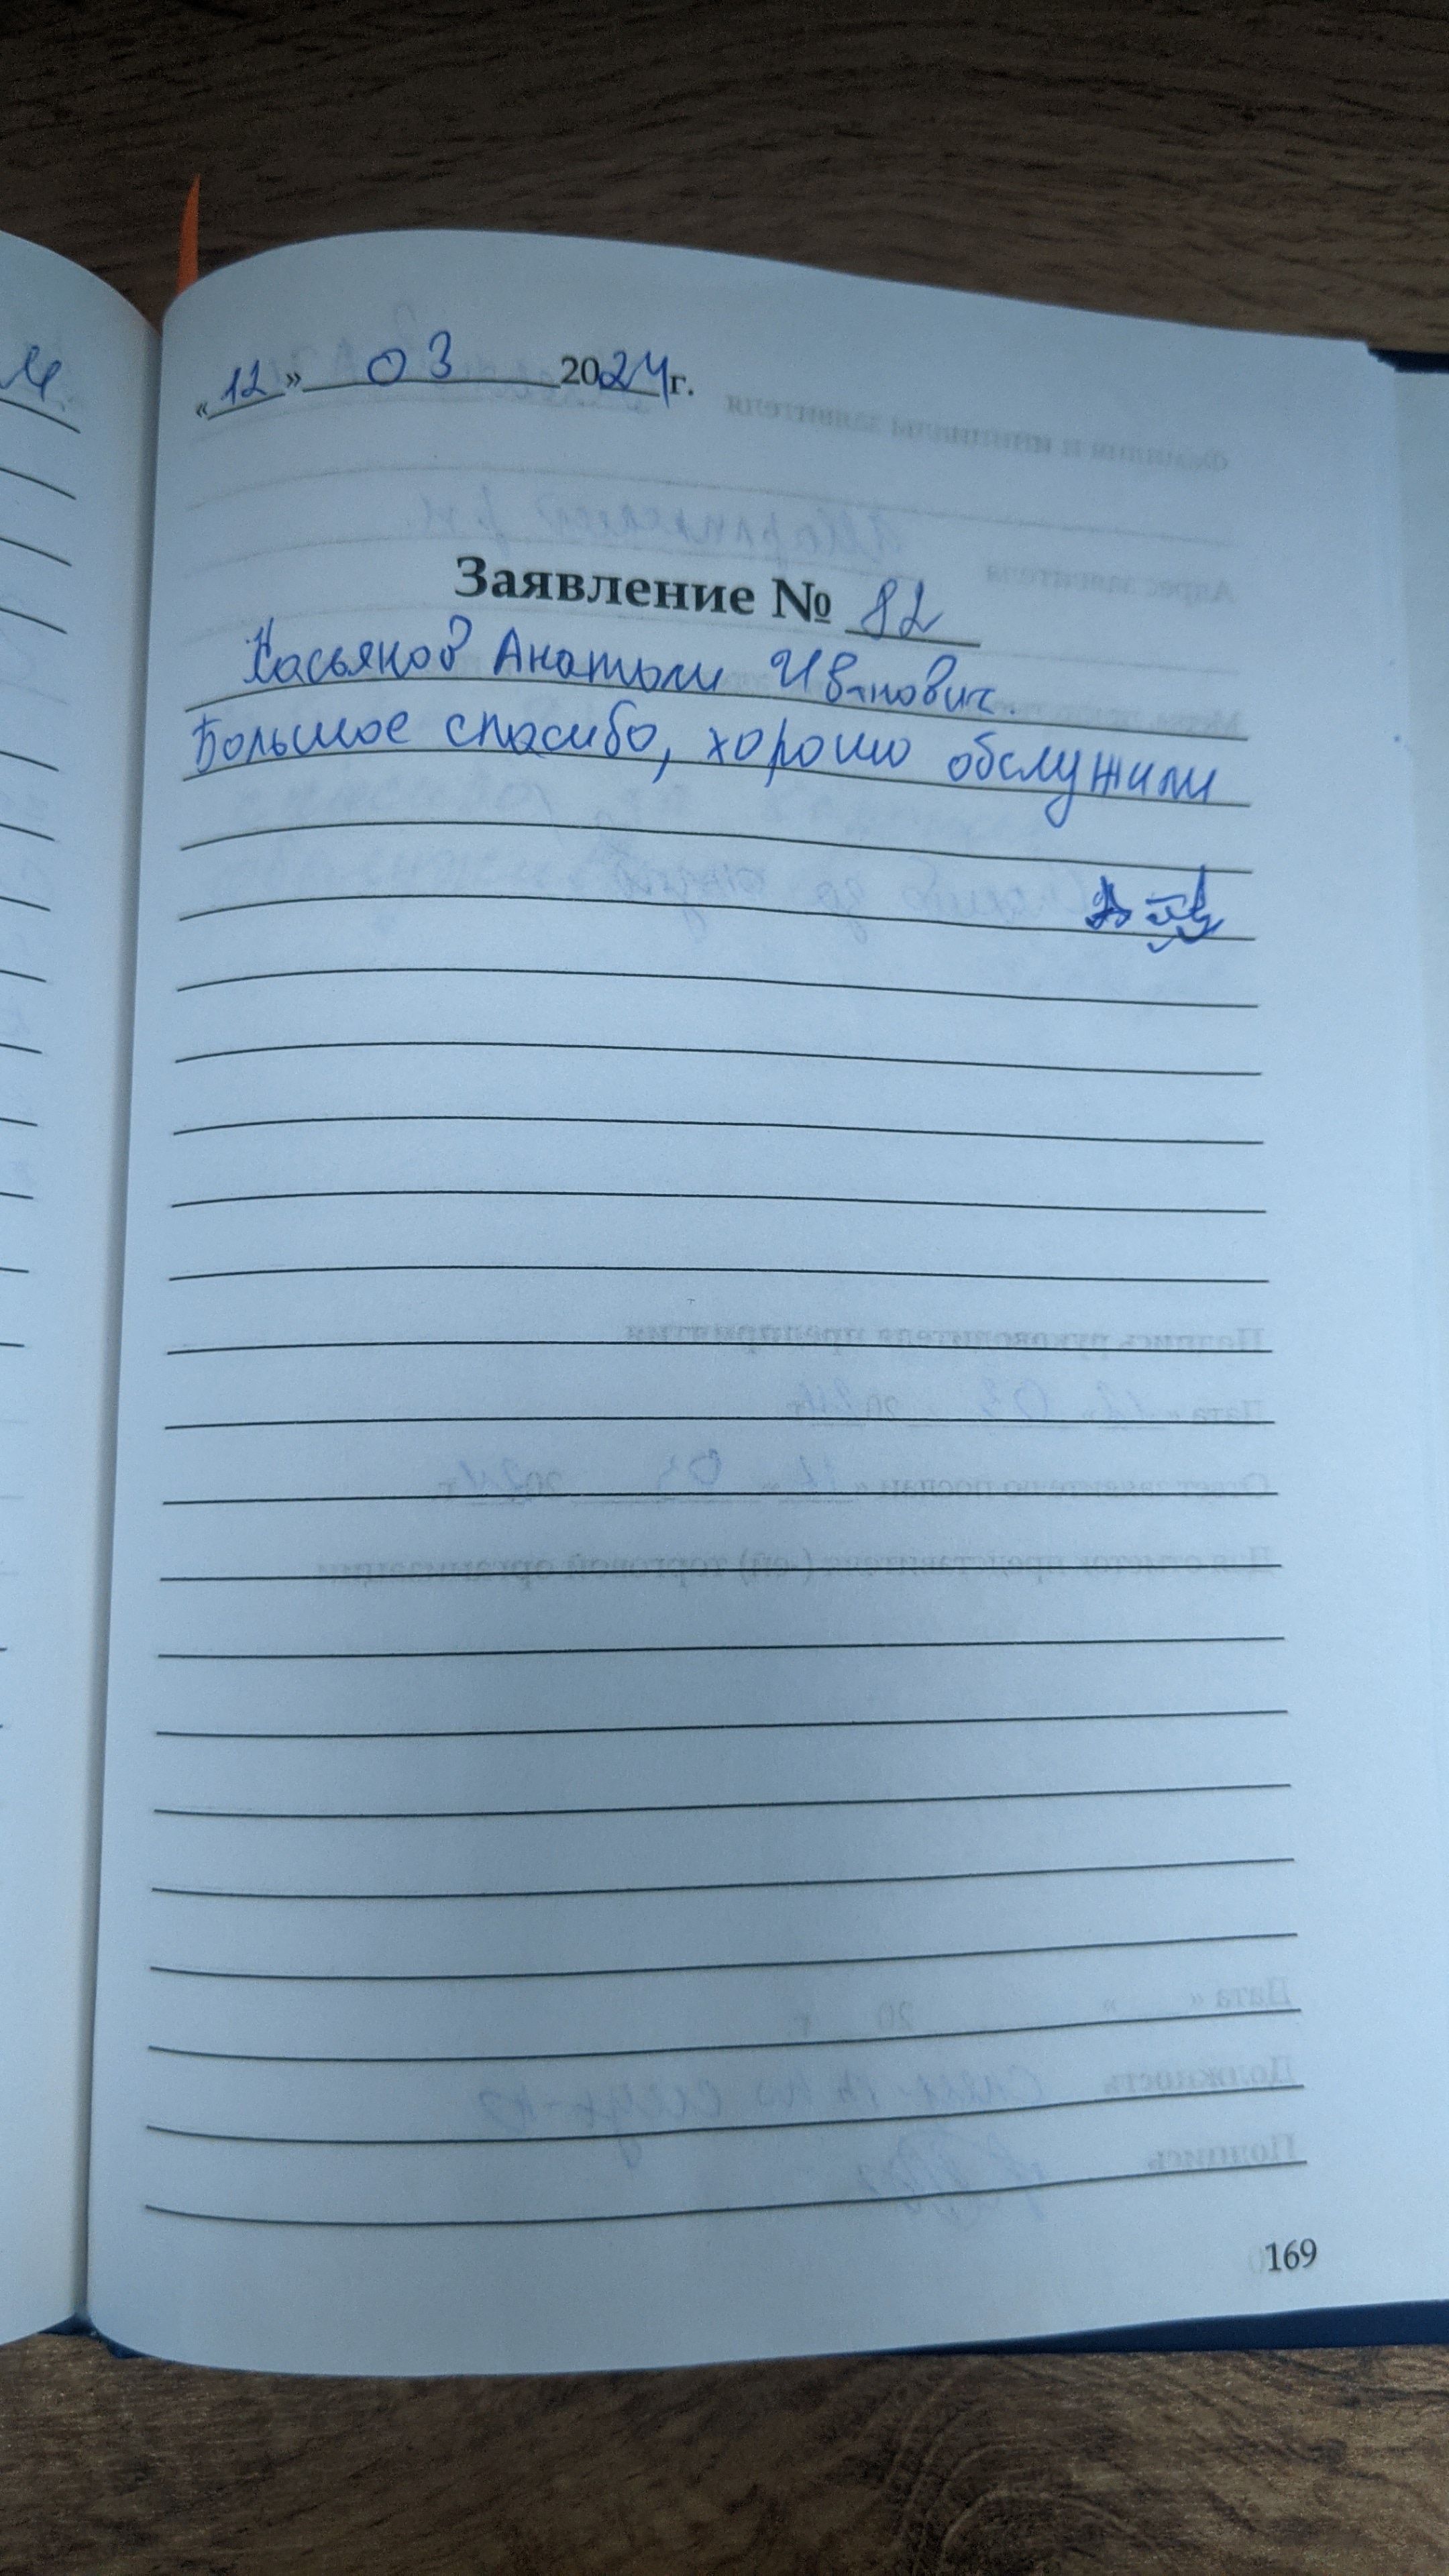 «12» 03 2024г.
Заявление № 82
Касьянов Анатоли Иванович.
Большое спасибо, хорошо обслужили
169